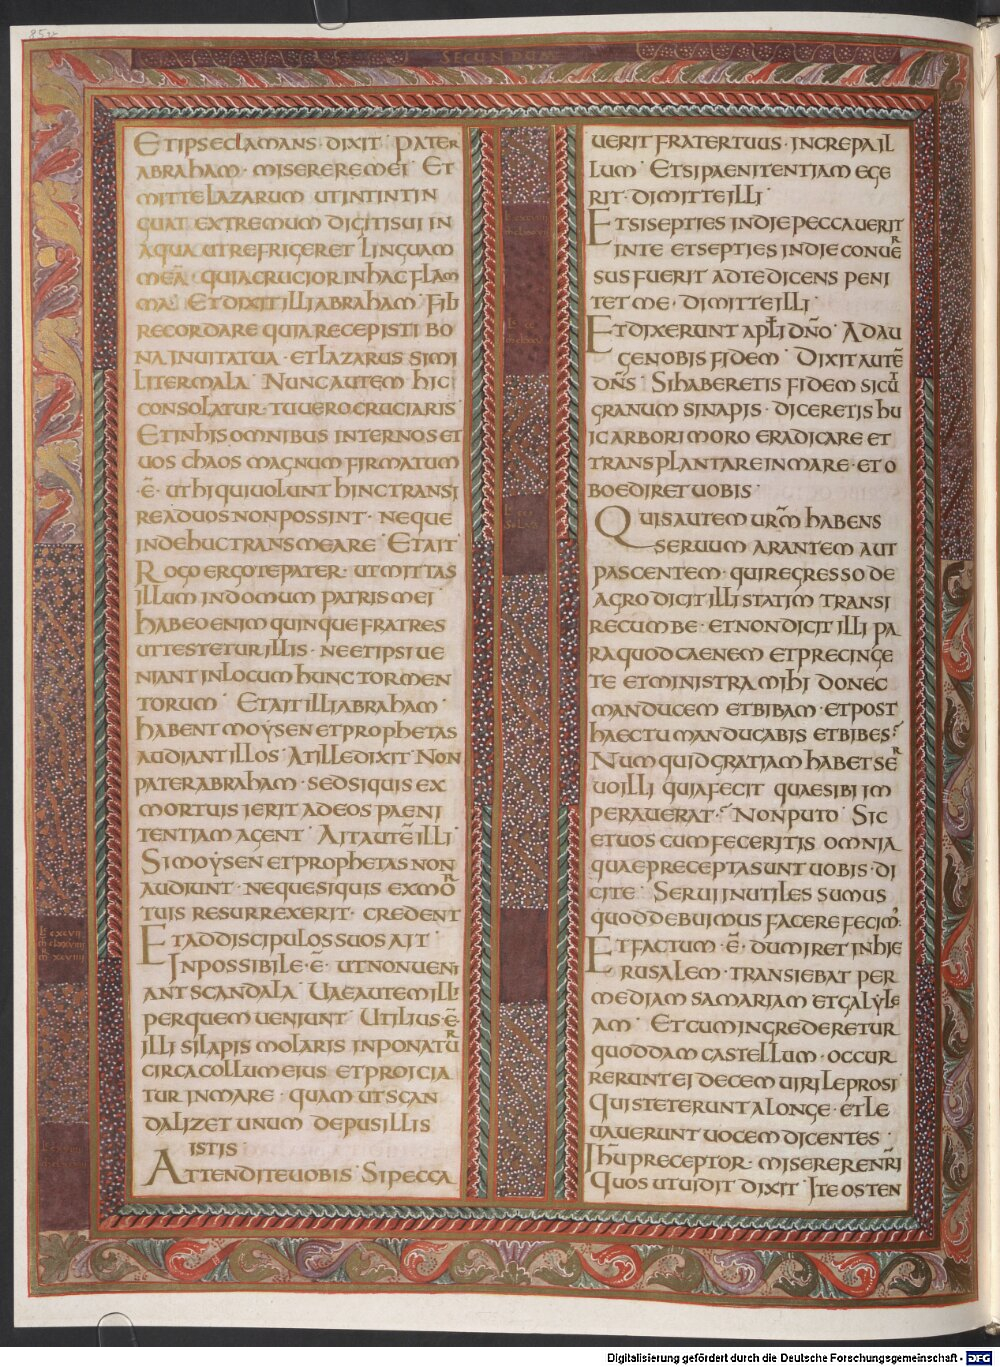 85v
SECUNDUM
ETIPSECLAMANS· DIXIT· PATER
ABRAHAM· MISEREREMEI· ET
MITTE LAZARUM UTINTINTIN
QUAT EXTREMUM DIGITISUI IN
AQUA UTREFRIGERET LINGUAM
MEĀ· QUIACRUCIOR IN HAC FLAM
MA· ETDIXIT ILLI ABRAHAM· FILI
RECORDARE QUIA RECEPISTI BO
NA INUITATUA· ETLAZARUS SIMI
LITERMALA· NUNCAUTEM HIC
CONSOLATUR· TUUERO CRUCIARIS·
ETINHIS OMNIBUS INTERNOSET
UOS CHAOS MAGNUM FIRMATUM
·Ē· UTHIQUIUOLUNT HINCTRANSI
READUOS NONPOSSINT· NEQUE
INDEHUCTRANSMEARE· ETAIT·
ROGO ERGO TE PATER· UTMITTAS
ILLUM INDOMUM PATRISMEI·
HABEOENIM QUINQUE FRATRES
UTTESTETURILLIS· NEETIPSIUE
NIANT INLOCUM HUNC TORMEN
TORUM· ETAIT ILLI ABRAHAM·
HABENT MOYSEN ETPROPHETAS
AUDIANT ILLOS· ATILLEDIXIT· NON
PATERABRAHAM· SEDSIQUIS EX
MORTUIS IERIT ADEOS PAENI
TENTIAM AGENT· AITAUTĒ ILLI·
SIMOYSEN ETPROPHETAS NON
AUDIUNT· NEQUESIQUIS EXMOR
TUIS RESURREXERIT· CREDENT
ETADDISCIPULOSSUOS AIT·
INPOSSIBILE·Ē· UTNONUENI
ANT SCANDALA· UAEAUTEM ILLI
PERQUEM UENIUNT· UTILIUS·Ē·
ILLI SILAPIS MOLARIS INPONATUR
CIRCACOLLUM EIUS ETPROICIA
TUR INMARE· QUAM UTSCAN
DALIZET UNUM DEPUSILLIS
ISTIS·
ATTENDITEUOBIS· SIPECCA
UERIT FRATERTUUS· INCREPAIL
LUM· ETSIPAENITENTIAM EGE
RIT· DIMITTEILLI·
ETSISEPTIES INDIE PECCAUERIT
INTE ETSEPTIES INDIE CONUER
SUS FUERIT ADTEDICENS PENI
TETME· DIMITTEILLI·
ETDIXERUNT APŁI DÑO· ADAU
GENOBIS FIDEM· DIXITAUTĒ
DÑS· SIHABERETIS FIDEM SICUT
GRANUM SINAPIS· DICERETIS HU
ICARBORIMORO ERADICARE ET
TRANSPLANTARE INMARE· ETO
BOEDIRETUOBIS·
QUISAUTEM URM̄ HABENS
SERUUM ARANTEM AUT
PASCENTEM· QUIREGRESSO DE
AGRO DICIT ILLI STATIM TRANSI
RECUMBE· ETNONDICIT ILLI PA
RAQUODCAENEM ETPRECINGE
TE ETMINISTRAMIHI DONEC
MANDUCEM ETBIBAM· ETPOST
HAECTUMANDUCABIS ETBIBES?
NUMQUIDGRATIAM HABETSER
UOILLI QUIAFECIT QUAESIBI IM
PERAUERAT? NONPUTO· SIC
ETUOS CUM FECERITIS OMNIA
QUAEPRECEPTASUNT UOBIS· DI
CITE· SERUI INUTILES SUMUS
QUODDEBUIMUS FACERE FECIM'·
ETFACTUM·Ē· DUMIRET INHIE
RUSALEM· TRANSIEBAT PER
MEDIAM SAMARIAM ETGALYLE
AM· ETCUMINGREDERETUR
QUODDAM CASTELLUM· OCCUR
RERUNTEI DECEM UIRI LEPROSI
QUISTETERUNT ALONGE· ETLE
UAUERUNT UOCEM DICENTES·
IHU PRECEPTOR· MISERERENRI
QUOS UTUIDIT DIXIT· ITE OSTEN
Digitalisierung gefördert durch die Deutsche Forschungsgemeinschaft - DFG